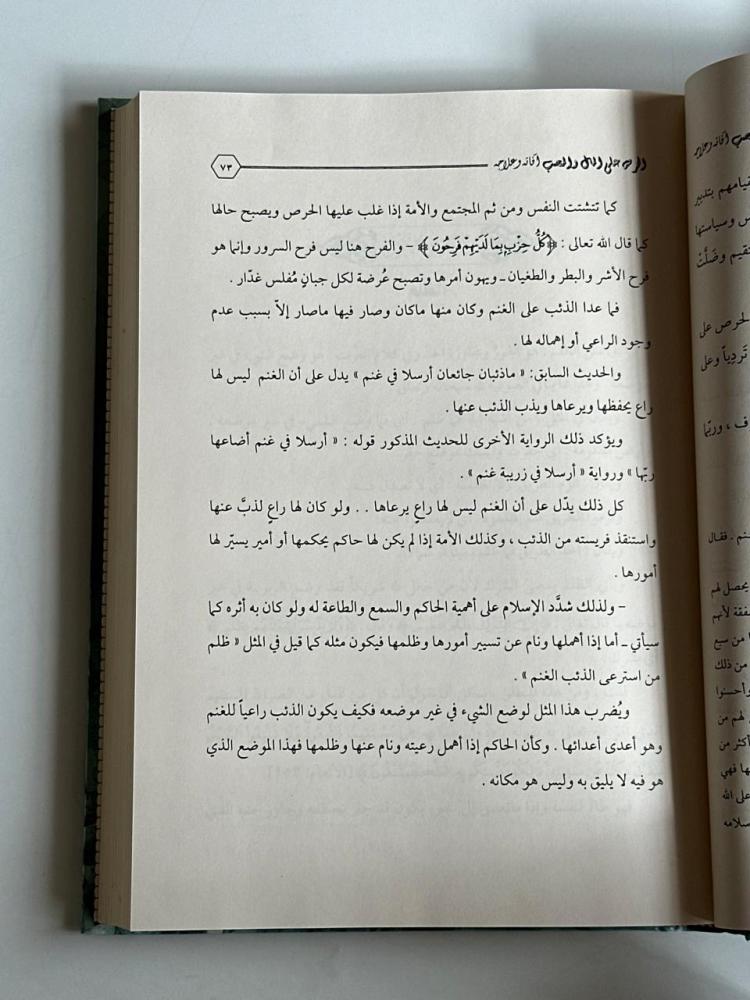 الحرص على المال والمنصب آفاته وعلاجه
٧٣
كما تتشتت النفس ومن ثم المجتمع والأمة إذا غلب عليها الحرص ويصبح حالها
كما قال الله تعالى : ﴿كُلُّ حِزْبٍ بِمَا لَدَيْهِمْ فَرِحُونَ﴾ - والفرح هنا ليس فرح السرور وإنما هو
فرح الأشر والبطر والطغيان - ويهون أمرها وتصبح عُرضة لكل جبانٍ مُفلس غدّار .
فما عدا الذئب على الغنم وكان منها ماكان وصار فيها ماصار إلاّ بسبب عدم
وجود الراعي أو إهماله لها .
والحديث السابق: « ماذئبان جائعان أرسلا في غنم » يدل على أن الغنم ليس لها
راع يحفظها ويرعاها ويذب الذئب عنها .
ويؤكد ذلك الرواية الأخرى للحديث المذكور قوله : « أرسلا في غنم أضاعها
ربّها » ورواية « أرسلا في زريبة غنم » .
كل ذلك يدّل على أن الغنم ليس لها راعٍ يرعاها . . ولو كان لها راعٍ لذبَّ عنها
واستنقذ فريسته من الذئب ، وكذلك الأمة إذا لم يكن لها حاكم يحكمها أو أمير يسيّر لها
أمورها .
- ولذلك شدَّد الإسلام على أهمية الحاكم والسمع والطاعة له ولو كان به أثره كما
سيأتي - أما إذا أهملها ونام عن تسيير أمورها وظلمها فيكون مثله كما قيل في المثل « ظلم
من استرعى الذئب الغنم » .
ويُضرب هذا المثل لوضع الشيء في غير موضعه فكيف يكون الذئب راعياً للغنم
وهو أعدى أعدائها . وكأن الحاكم إذا أهمل رعيته ونام عنها وظلمها فهذا الموضع الذي
هو فيه لا يليق به وليس هو مكانه .
قيامهم بتدبير
وسياستها
وضَلَّتْ
الحرص على
تَردِياً وعلى
ف ، وربّما
غنم . فقال
يحصل لهم
لأنهم
من سبع
من ذلك
وأحسنوا
لهم من
أكثر من
فهي
على الله